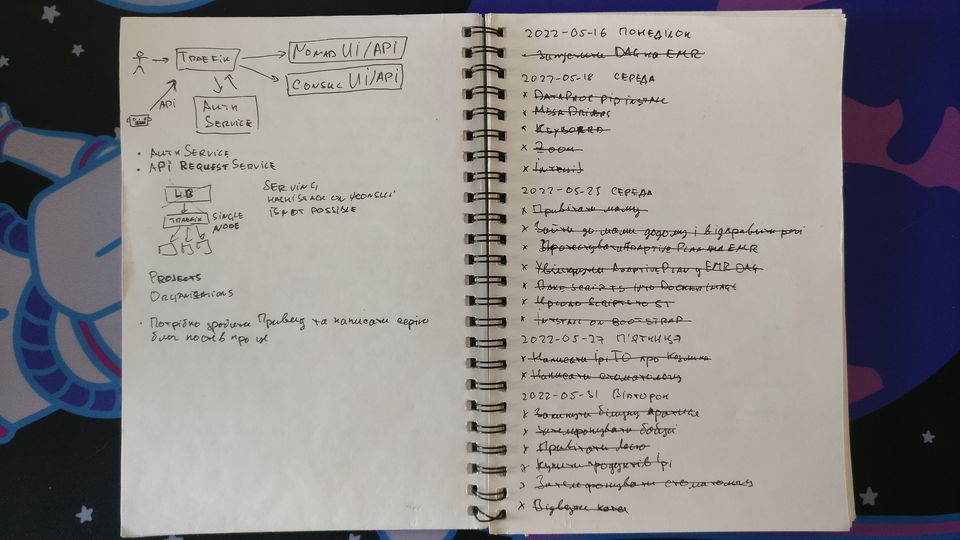 Traefik
Nomad UI/API
Consul UI/API
API
Auth
Service
• Auth Service
• API Request Service
LB
Traefik
Single
Node
Serving
is not possible
Projects
Organizations
• Потрібно зробити Привид та написати серію
блог постів про це
2022-05-16 Понеділок
DAG на EMR
2022-05-18 Середа
x Dataproc pip install
x Mesa Drivers
x Keyboard
x Zoom
x IntelliJ
2022-05-25 Середа
x Привітати маму
x Зайти до мами додому і відправити речі
x Протестувати Adaptive Plan на EMR
x Увімкнути Adaptive Plan у EMR DAG
x Bake scripts into Docker image
x Upload scripts to
x Install on Bootstrap
2022-05-27 П'ятниця
x Написати про
x Написати стоматологу
2022-05-31 Вівторок
x
x Зателефонувати бабусі
x Привітати Лесю
x Купити продуктів Ірі
x Зателефонувати стоматологу
x Відвезти кота